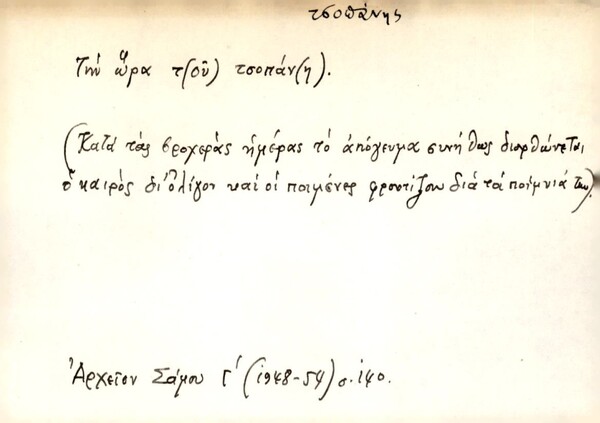 τσοπάνης
Τὴν ὥρα τ(οῦ) τσοπάν(η).
(Κατὰ τὰς βροχερὰς ἡμέρας τὸ ἀπόγευμα συνήθως διορθώνεται
ὁ καιρὸς δι' ὀλίγον καὶ οἱ ποιμένες φροντίζουν διὰ τὰ ποίμνιά των).
Ἀρχεῖον Σάμου Γ' (1948-54) σ. 140.